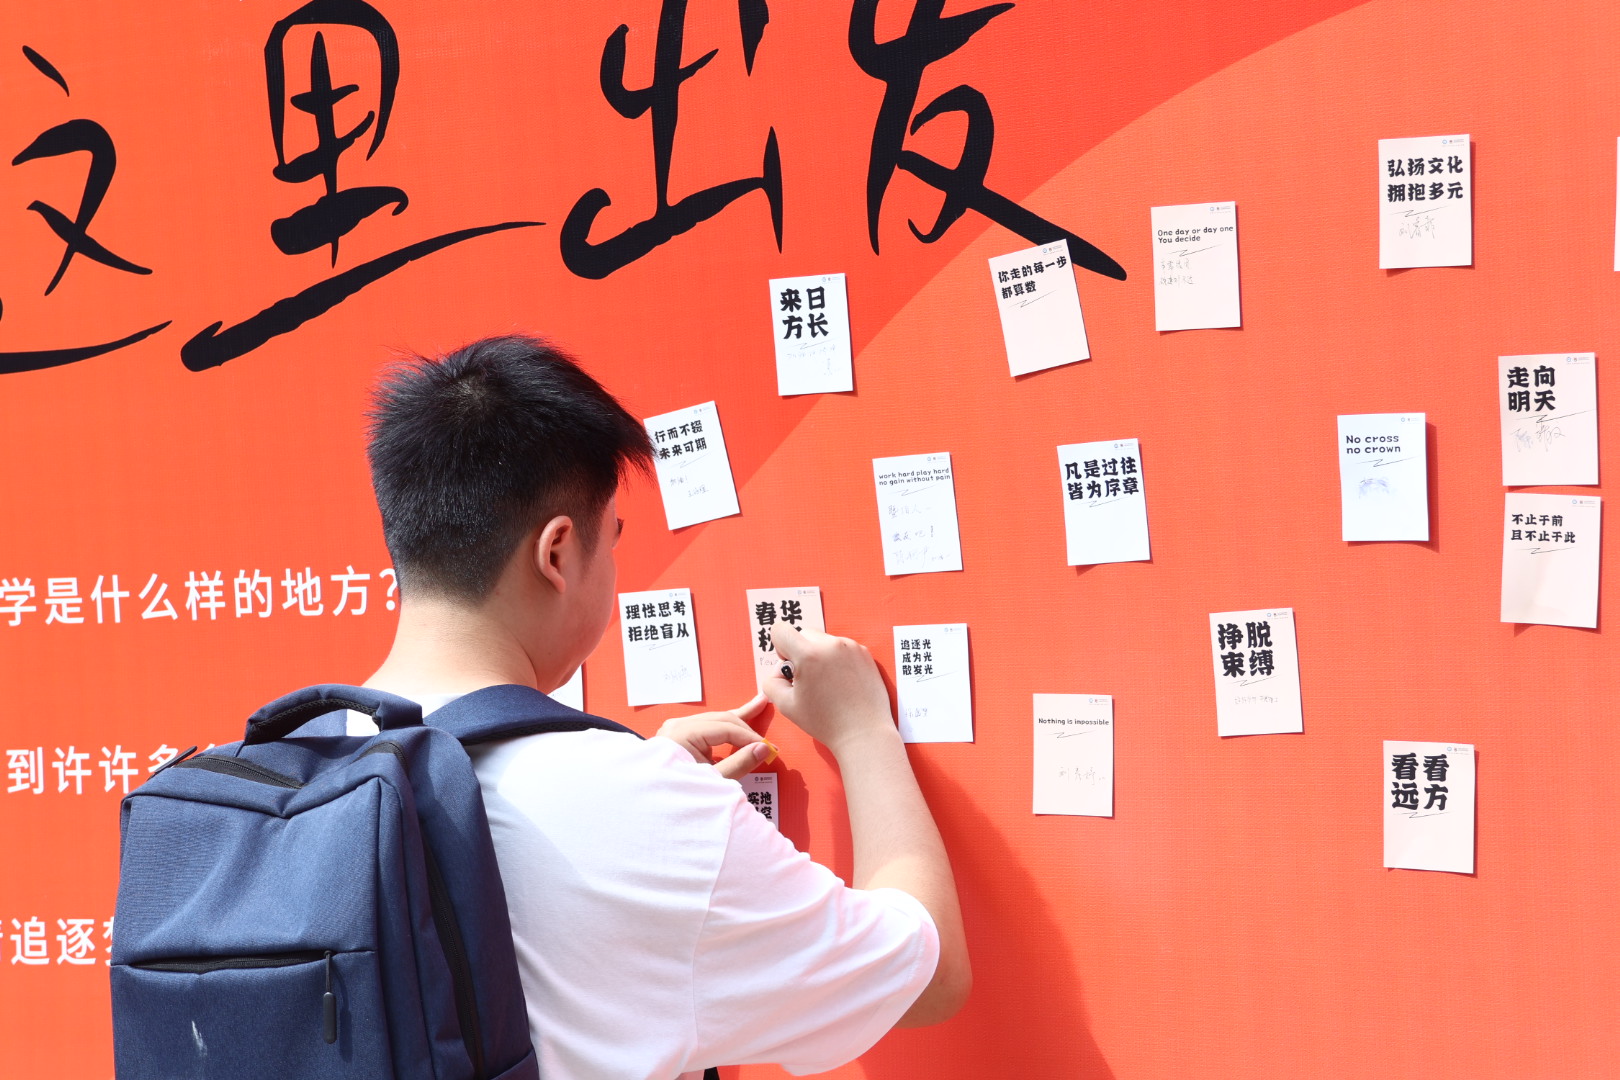 这里出发
学是什么样的地方？
到许许多
追逐梦
来日
方长
你走的每一步
都算数
One day or day one
You decide
弘扬文化
拥抱多元
行而不辍
未来可期
work hard play hard
no gain without pain
凡是过往
皆为序章
No cross
no crown
走向
明天
不止于前
且不止于此
理性思考
拒绝盲从
春华
秋
追逐光
成为光
散发光
挣脱
束缚
Nothing is impossible
看看
远方
实地
空